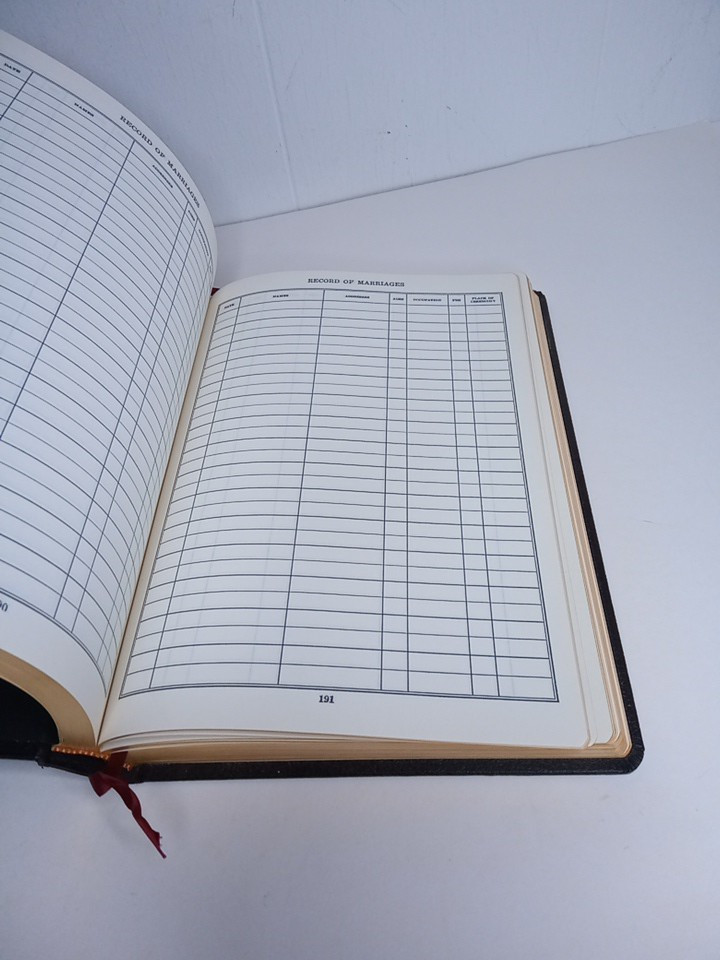 RECORD OF MARRIAGES
DATE NAMES ADDRESSES
RECORD OF MARRIAGES
DATE NAMES ADDRESSES AGES OCCUPATION FEE PLACE OF CEREMONY
191